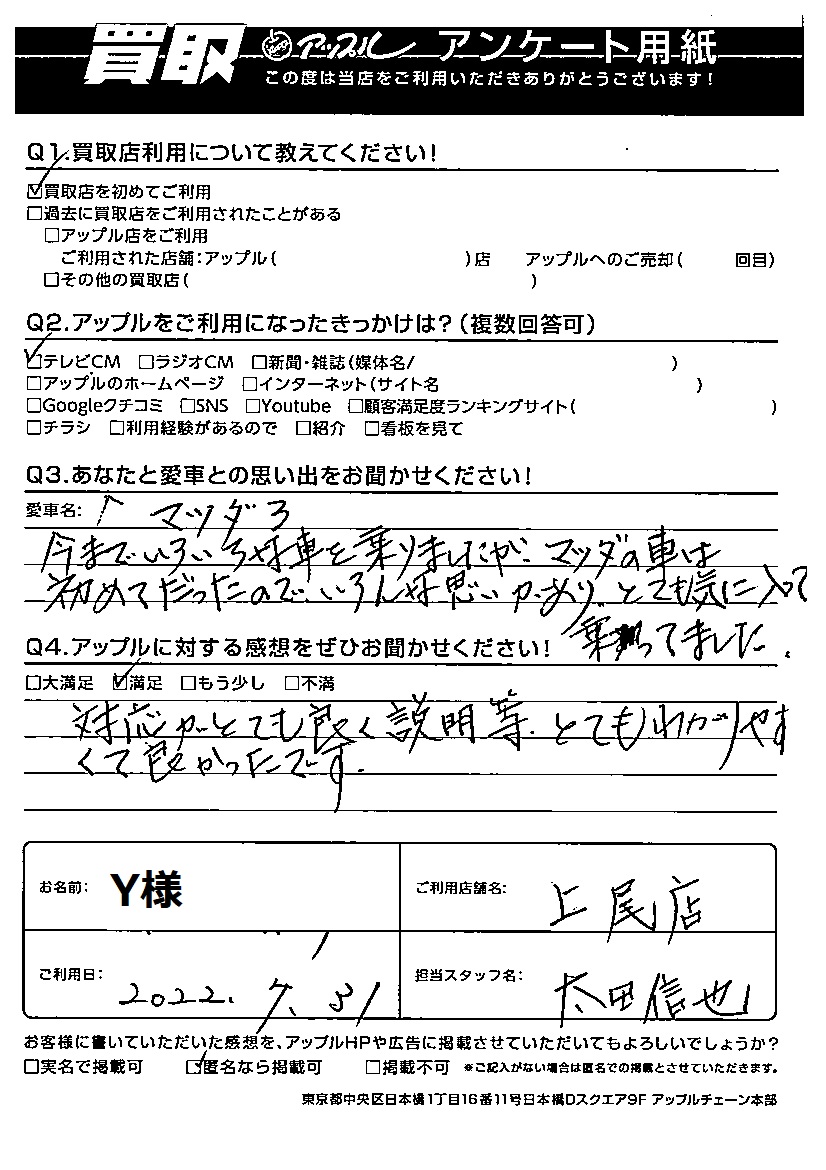 買取 アップル アンケート用紙
この度は当店をご利用いただきありがとうございます!
Q1.買取店利用について教えてください!
☑買取店を初めてご利用
□過去に買取店をご利用されたことがある
□アップル店をご利用
ご利用された店舗:アップル( )店 アップルへのご売却( 回目)
□その他の買取店( )
Q2.アップルをご利用になったきっかけは?(複数回答可)
☑テレビCM □ラジオCM □新聞・雑誌(媒体名/ )
□アップルのホームページ □インターネット(サイト名 )
□Googleクチコミ □SNS □Youtube □顧客満足度ランキングサイト( )
□チラシ □利用経験があるので □紹介 □看板を見て
Q3.あなたと愛車との思い出をお聞かせください!
愛車名: マツダ3
今までいろいろな車を乗りましたが、マツダの車は
初めてだったので、いろんな思いがあり、とても気に入って
乗ってました。
Q4.アップルに対する感想をぜひお聞かせください!
□大満足 ☑満足 □もう少し □不満
対応がとても良く説明等、とてもわかりやす
くて良かったです.
お名前: Y様 ご利用店舗名: 上尾店
ご利用日: 2022. 7. 31 担当スタッフ名: 太田信也
お客様に書いていただいた感想を、アップルHPや広告に掲載させていただいてもよろしいでしょうか?
□実名で掲載可 ☑匿名なら掲載可 □掲載不可 ※ご記入がない場合は匿名での掲載とさせていただきます。
東京都中央区日本橋1丁目16番11号日本橋Dスクエア9F アップルチェーン本部